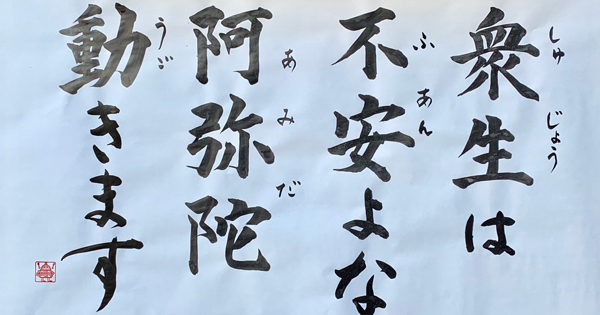 衆生は
しゅじょう
不安よな
ふあん
阿弥陀
あみだ
動きます
うご